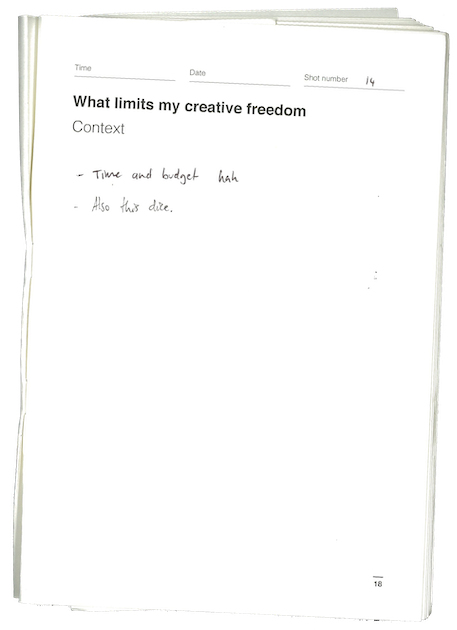 Time
Date
Shot number 14
What limits my creative freedom
Context
- Time and budget hah
- Also this dice.
18